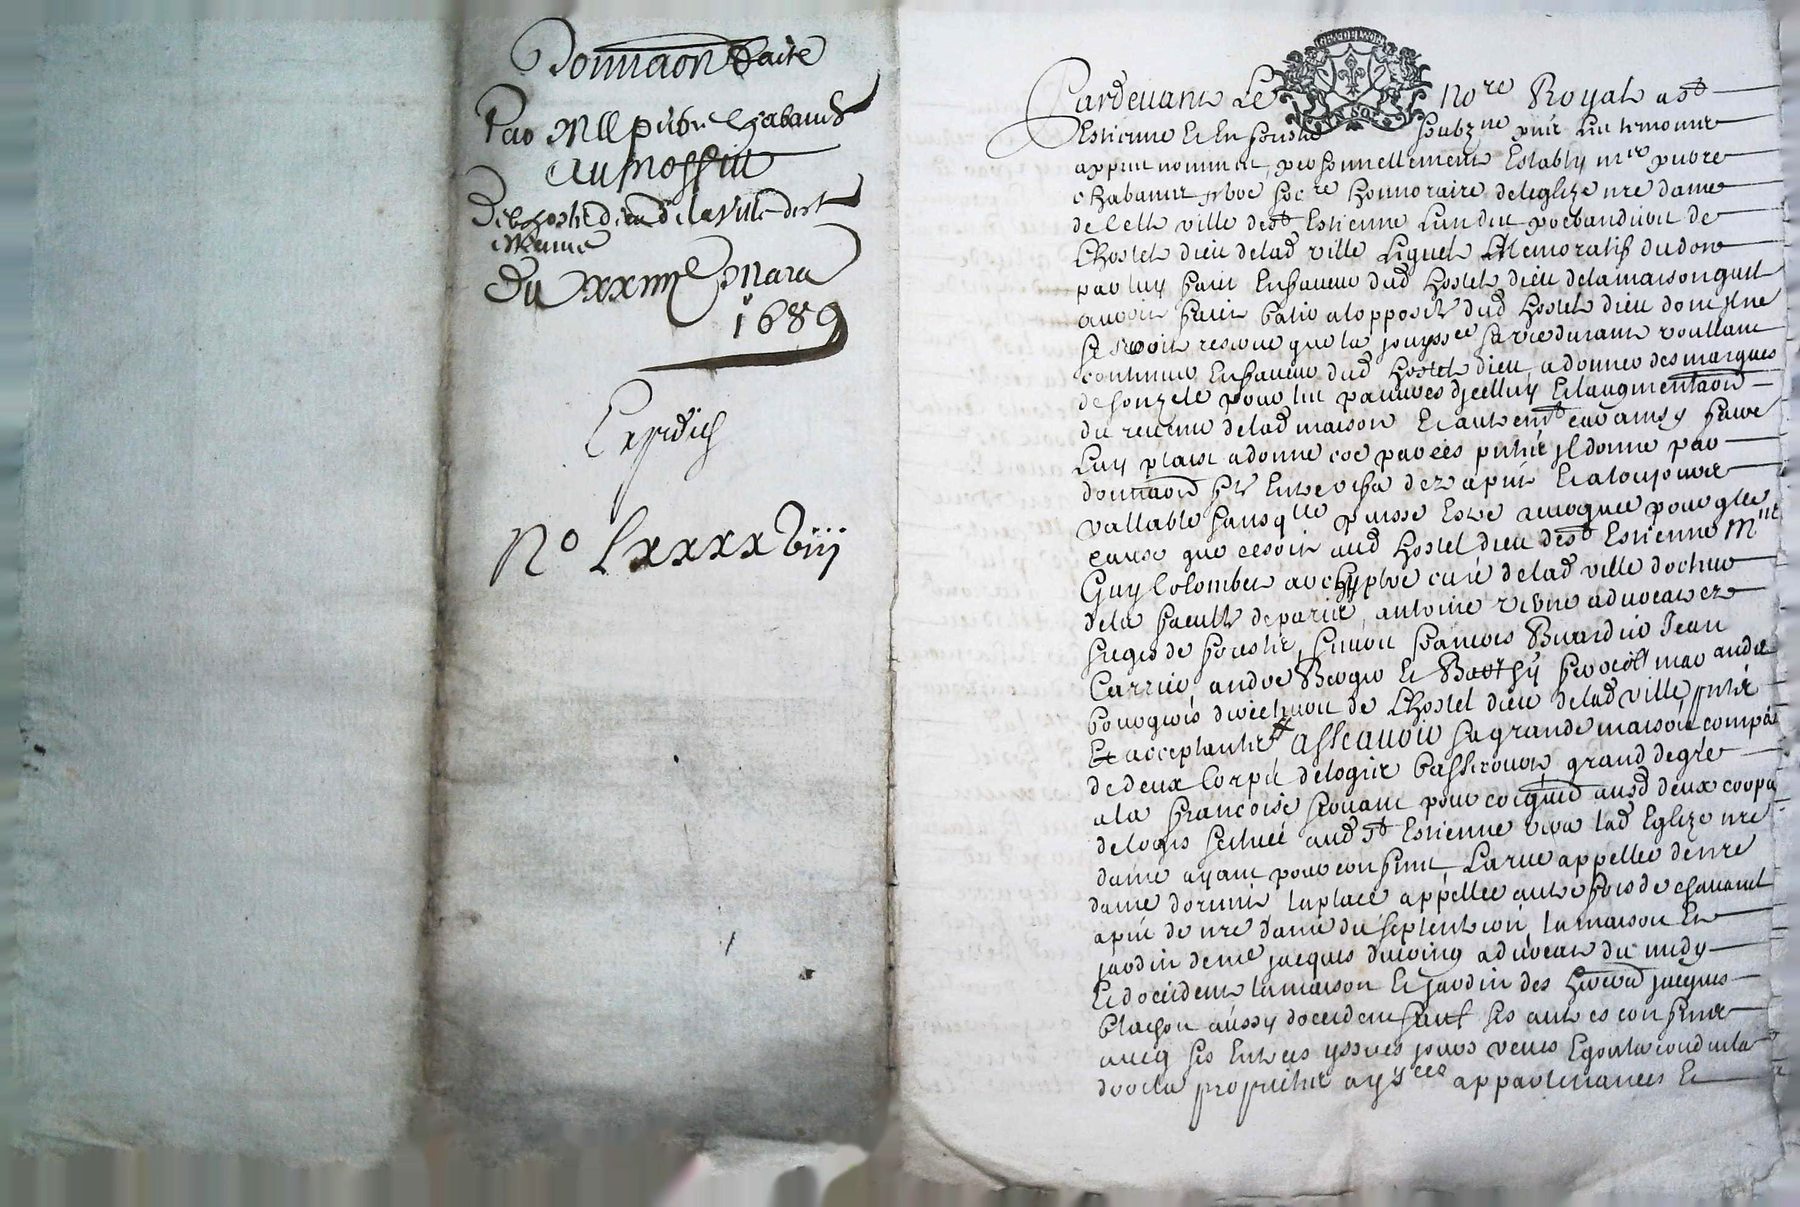 Donnaon faite
Par Mre pierre Chabanet
Aumosnier
De lhostel dieu de la ville de st
estienne
Du xxiiiie Mars
1689
Expedié
No Lxxxxviii
Pardevant Le nore Royal a st
Estienne Et En forestz soubzne pnt Les temoins
apres nommes personnellement Estably mre pierre
Chabanet pbre socre honnoraire de leglize nre dame
de cette ville de st Estienne Lun des prebandiers de
Lhostel dieu de lad ville Lequel Memoratif du don
par luy fait En faveur dud hostel dieu de la maison quil
avoit fait batir a lopposite dud hostel dieu dont il ne
sestoit reservé que la jouyssce sa vie durant voullant
continuer En faveur dud hostel dieu a donner des marques
de son zele pour les pauvres dicelluy Et laugmentaon
du revenu de lad maison Et autremt car ainsy faire
Luy plait a donné coe par ces pntes il donne par
donnaon fte Entre vifs des apnt Et a toujours
vallable sans qlle puisse Estre revoquee pour qlle
cause que ce soit aud hostel dieu de st Estienne Mre
Guy Colombet archyptre curé de lad ville docteur
de la faculté de paris, antoine advocat ez
sieges de forestz, simon francois Jean
Carrier, andré Et mar andré
bourgeois directeurs de Lhostel dieu de lad ville, pntz
Et acceptants assavoir sa grande maison compée
de deux Corps de logis basse court, grand degré
a la francoise servant pour aud deux corps
de logis scituée aud st Estienne vers lad Eglize nre
dame ayant pour confins La rue appellée de nre
dame dorient la place appellée autrefois de chavanel
apnt de nre dame du septentrion, la maison Et
jardin de me jacques advocat du midy
Et doccident la maison Et jardin des jacques
blachon aussy doccident sauf ses autres confins
avec ses Entrees yssues jours veues Egouts conduits
droits proprietes aysces appartenances Et